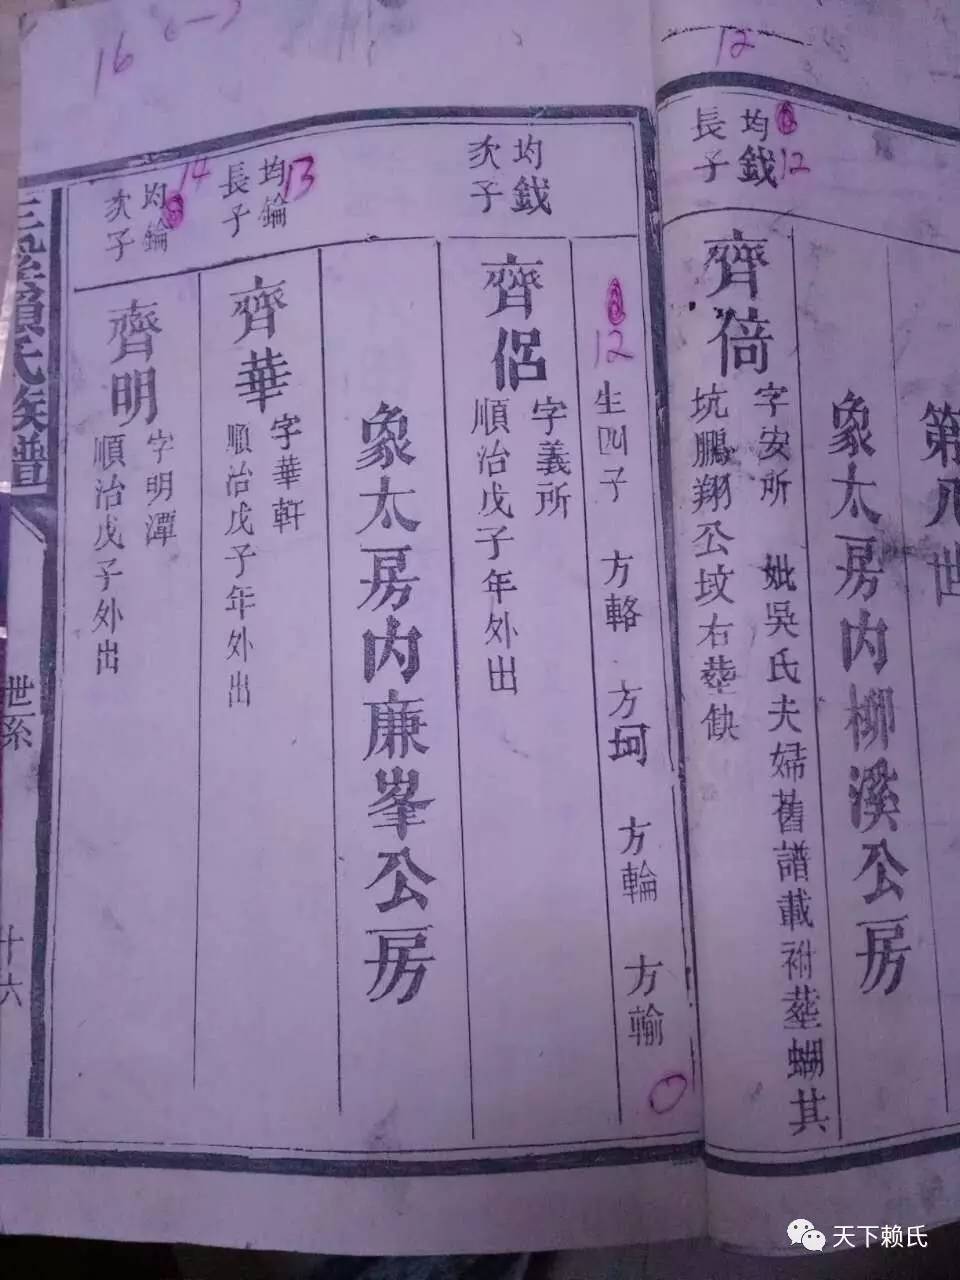 12
第八世
象太房内柳溪公房
均鉞
12
長子
齊倚
字安所 妣吳氏夫婦舊譜載祔塟蝴其
坑鵬翔公坟右塟缺
12
生四子 方輅 方珂 方輪 方輸
均鉞
次子
齊侶
字義所
順治戊子年外出
象太房内廉峯公房
均錀
13
長子
齊華
字華軒
順治戊子年外出
均錀
14
次子
齊明
字明潭
順治戊子年外出
賴氏族譜
世系
十六
16
天下赖氏